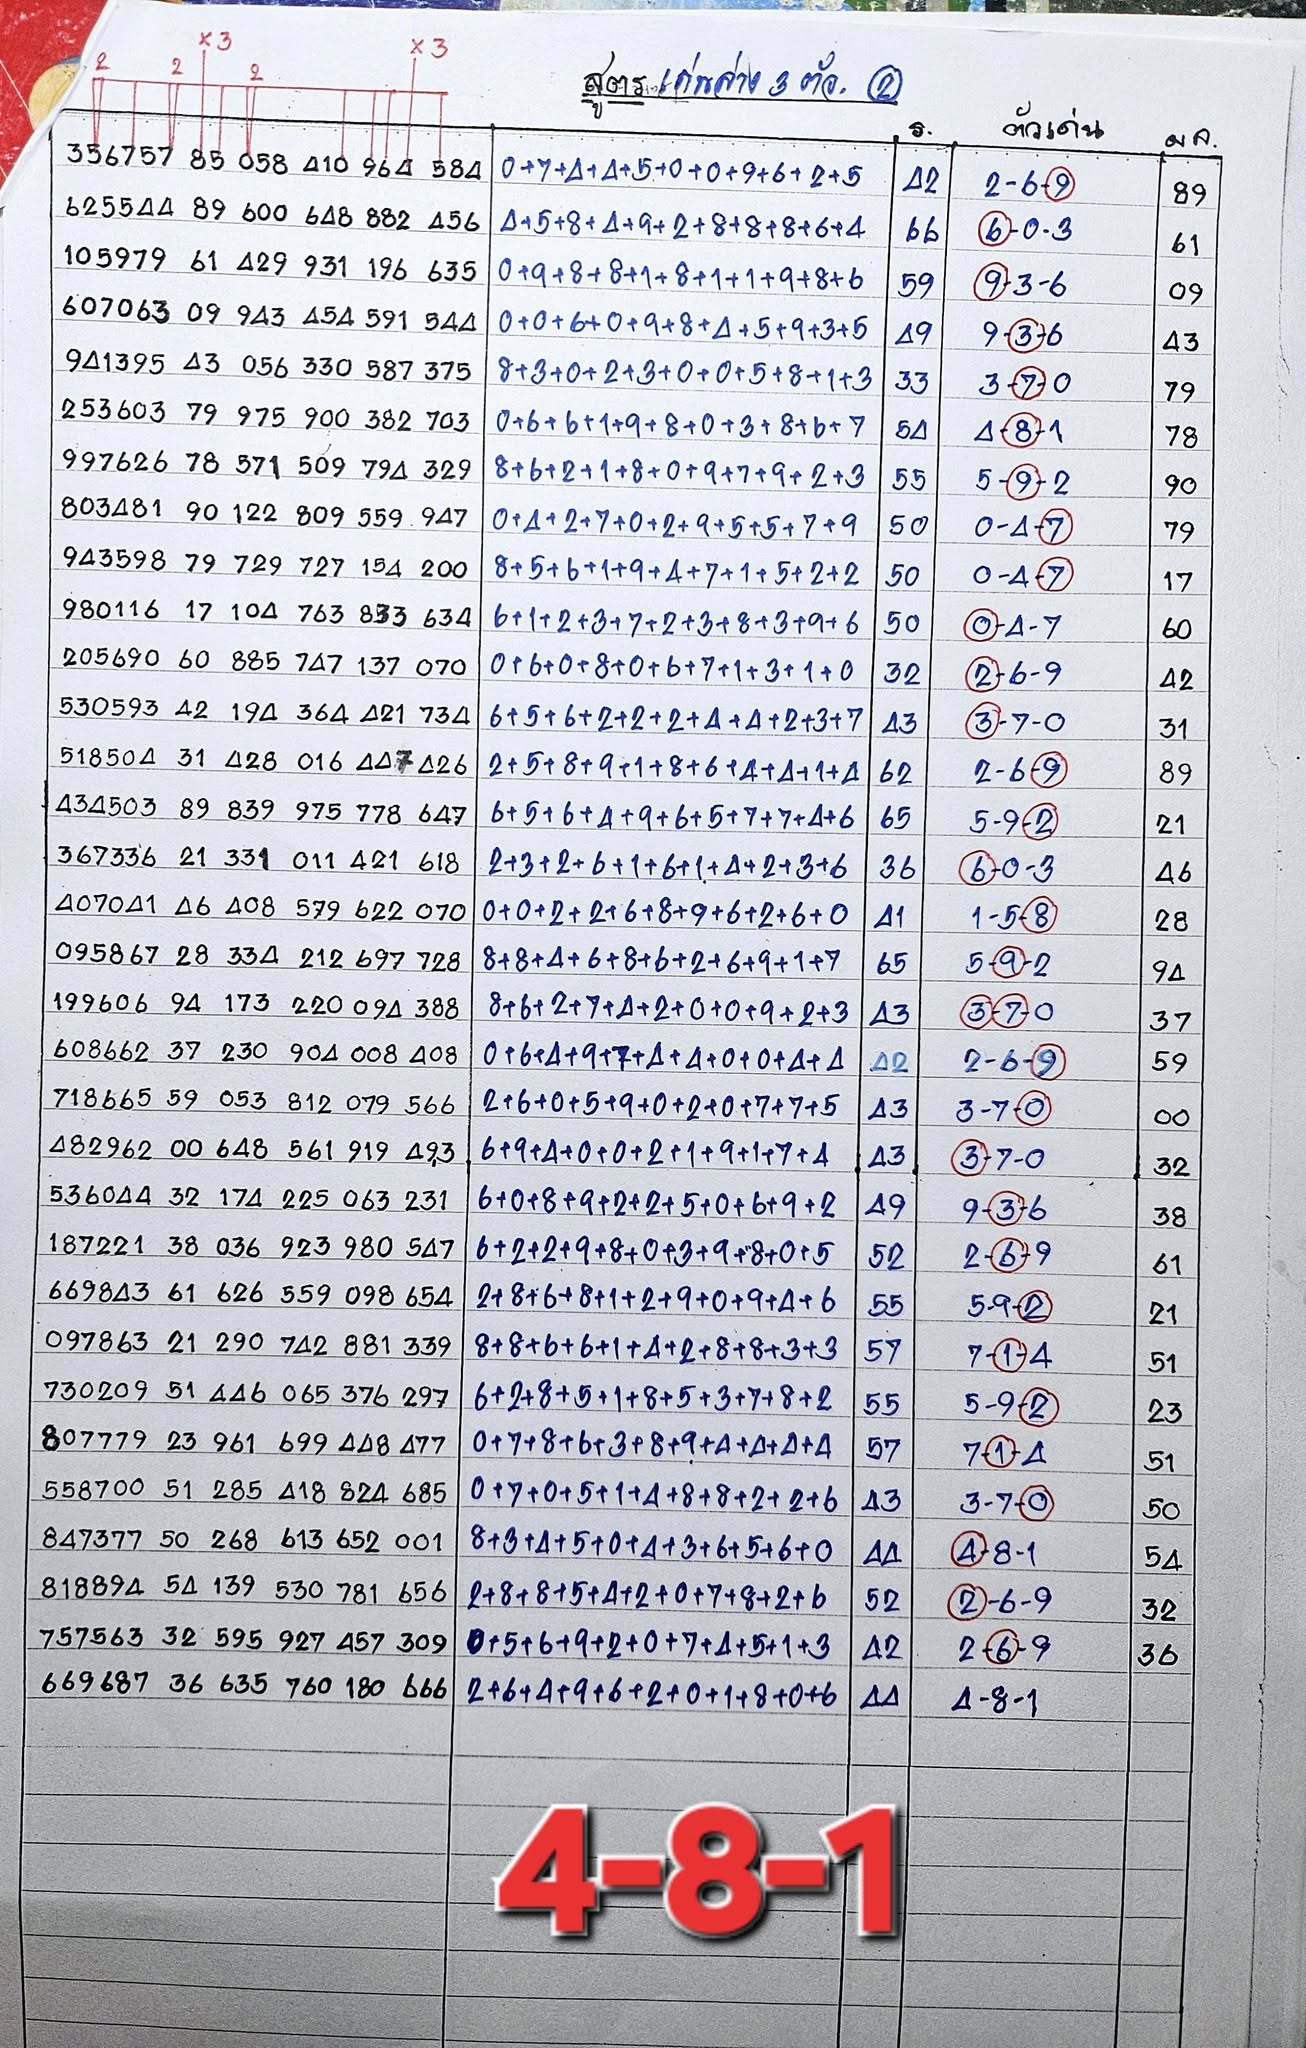 2 2 ×3 2 ×3
สูตร เด่นล่าง 3 ตัว. ②
ร. ตัวเด่น ผล.
356757 85 058 410 964 584 0+7+4+4+5+0+0+9+6+2+5 42 2-6-9 89
625544 89 600 648 882 456 4+5+8+4+9+2+8+8+8+6+4 66 6-0-3 61
105979 61 429 931 196 635 0+9+8+8+1+8+1+1+9+8+6 59 9-3-6 09
607063 09 943 454 591 544 0+0+6+0+9+8+4+5+9+3+5 49 9-3-6 43
941395 43 056 330 587 375 8+3+0+2+3+0+0+5+8+1+3 33 3-7-0 79
253603 79 975 900 382 703 0+6+6+1+9+8+0+3+8+6+7 54 4-8-1 78
997626 78 571 509 794 329 8+6+2+1+8+0+9+7+9+2+3 55 5-9-2 90
803481 90 122 809 559 947 0+4+2+7+0+2+9+5+5+7+9 50 0-4-7 79
943598 79 729 727 154 200 8+5+6+1+9+4+7+1+5+2+2 50 0-4-7 17
980116 17 104 763 833 634 6+1+2+3+7+2+3+8+3+9+6 50 0-4-7 60
205690 60 885 747 137 070 0+6+0+8+0+6+7+1+3+1+0 32 2-6-9 42
530593 42 194 364 421 734 6+5+6+2+2+2+4+4+2+3+7 43 3-7-0 31
518504 31 428 016 447 426 2+5+8+9+1+8+6+4+4+1+4 62 2-6-9 89
434503 89 839 975 778 647 6+5+6+4+9+6+5+7+7+4+6 65 5-9-2 21
367336 21 331 011 421 618 2+3+2+6+1+6+1+4+2+3+6 36 6-0-3 46
407041 46 408 579 622 070 0+0+2+2+6+8+9+6+2+6+0 41 1-5-8 28
095867 28 334 212 697 728 8+8+4+6+8+6+2+6+9+1+7 65 5-9-2 94
199606 94 173 220 094 388 8+6+2+7+4+2+0+0+9+2+3 43 3-7-0 37
608662 37 230 904 008 408 0+6+4+9+7+4+4+0+0+4+4 42 2-6-9 59
718665 59 053 812 079 566 2+6+0+5+9+0+2+0+7+7+5 43 3-7-0 00
482962 00 648 561 919 493 6+9+4+0+0+2+1+9+1+7+4 43 3-7-0 32
536044 32 174 225 063 231 6+0+8+9+2+2+5+0+6+9+2 49 9-3-6 38
187221 38 036 923 980 547 6+2+2+9+8+0+3+9+8+0+5 52 2-6-9 61
669843 61 626 559 098 654 2+8+6+8+1+2+9+0+9+4+6 55 5-9-2 21
097863 21 290 742 881 339 8+8+6+6+1+4+2+8+8+3+3 57 7-1-4 51
730209 51 446 065 376 297 6+2+8+5+1+8+5+3+7+8+2 55 5-9-2 23
807779 23 961 699 448 477 0+7+8+6+3+8+9+4+4+4+4 57 7-1-4 51
558700 51 285 418 824 685 0+7+0+5+1+4+8+8+2+2+6 43 3-7-0 50
847377 50 268 613 652 001 8+3+4+5+0+4+3+6+5+6+0 44 4-8-1 54
818894 54 139 530 781 656 2+8+8+5+4+2+0+7+8+2+6 52 2-6-9 32
757563 32 595 927 457 309 0+5+6+9+2+0+7+4+5+1+3 42 2-6-9 36
669687 36 635 760 180 666 2+6+4+9+6+2+0+1+8+0+6 44 4-8-1
4-8-1